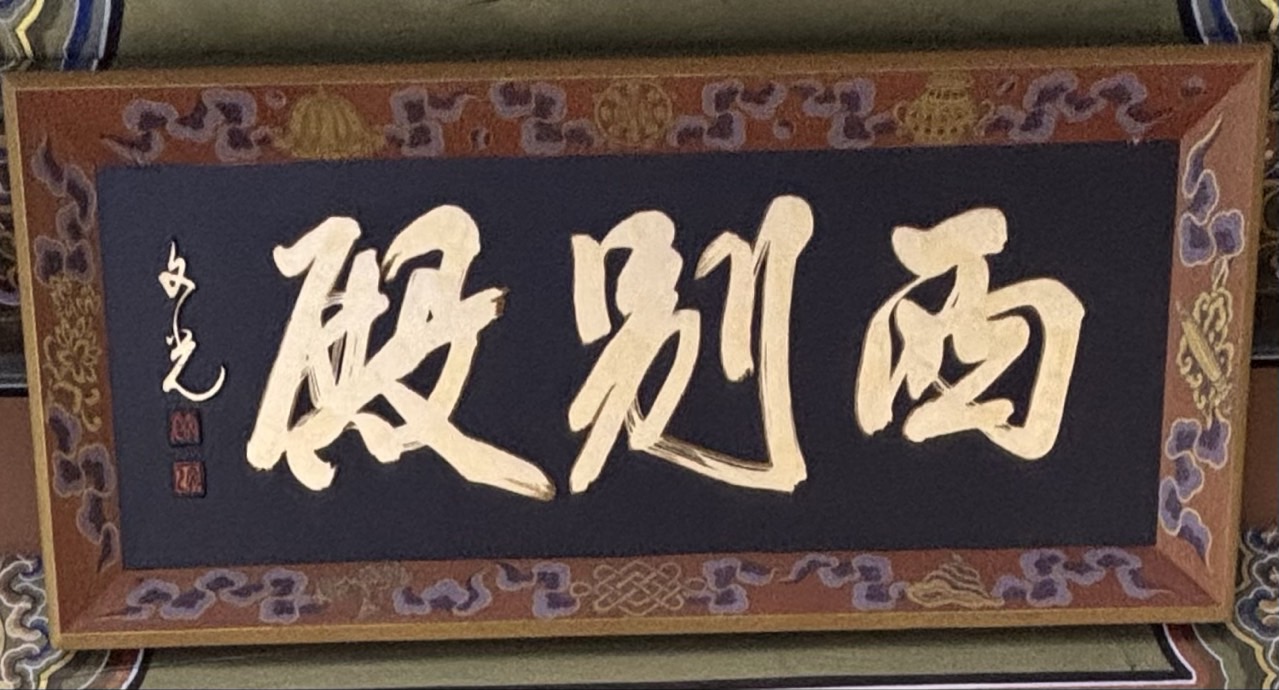 西別殿
文光